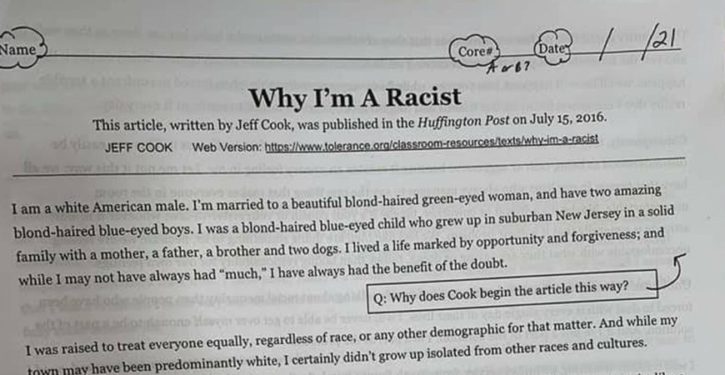 Name
Core# Date / /21
A or B?
Why I'm A Racist
This article, written by Jeff Cook, was published in the Huffington Post on July 15, 2016.
JEFF COOK Web Version: https://www.tolerance.org/classroom-resources/texts/why-im-a-racist
I am a white American male. I'm married to a beautiful blond-haired green-eyed woman, and have two amazing
blond-haired blue-eyed boys. I was a blond-haired blue-eyed child who grew up in suburban New Jersey in a solid
family with a mother, a father, a brother and two dogs. I lived a life marked by opportunity and forgiveness; and
while I may not have always had “much,” I have always had the benefit of the doubt.
Q: Why does Cook begin the article this way?
I was raised to treat everyone equally, regardless of race, or any other demographic for that matter. And while my
town may have been predominantly white, I certainly didn't grow up isolated from other races and cultures.